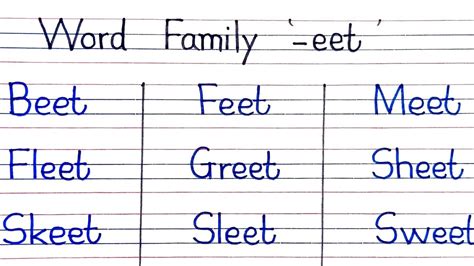 Word Family '-eet'
Beet Feet Meet
Fleet Greet Sheet
Skeet Sleet Sweet